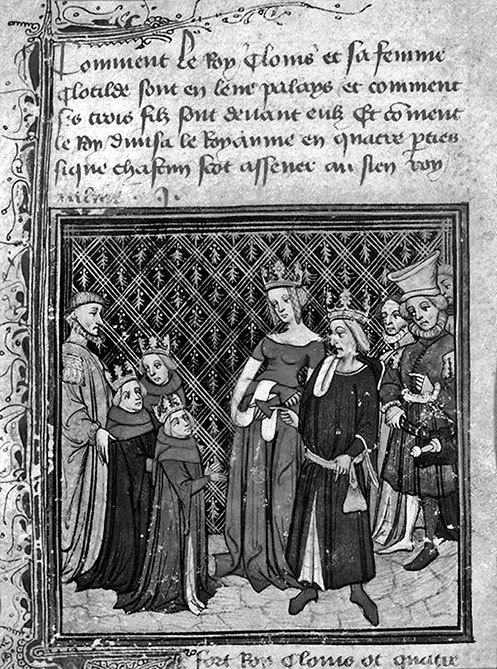 Comment le Roy Clouis et sa femme
Clotilde sont en leur palays et comment
ses trois filz sont deuant eulz Et cōment
le Roy diuisa le Royaume en quatre p̱ties
sique chascun scet assener au sien roy
aulme .J.
fort Roy Clouis ot quatre